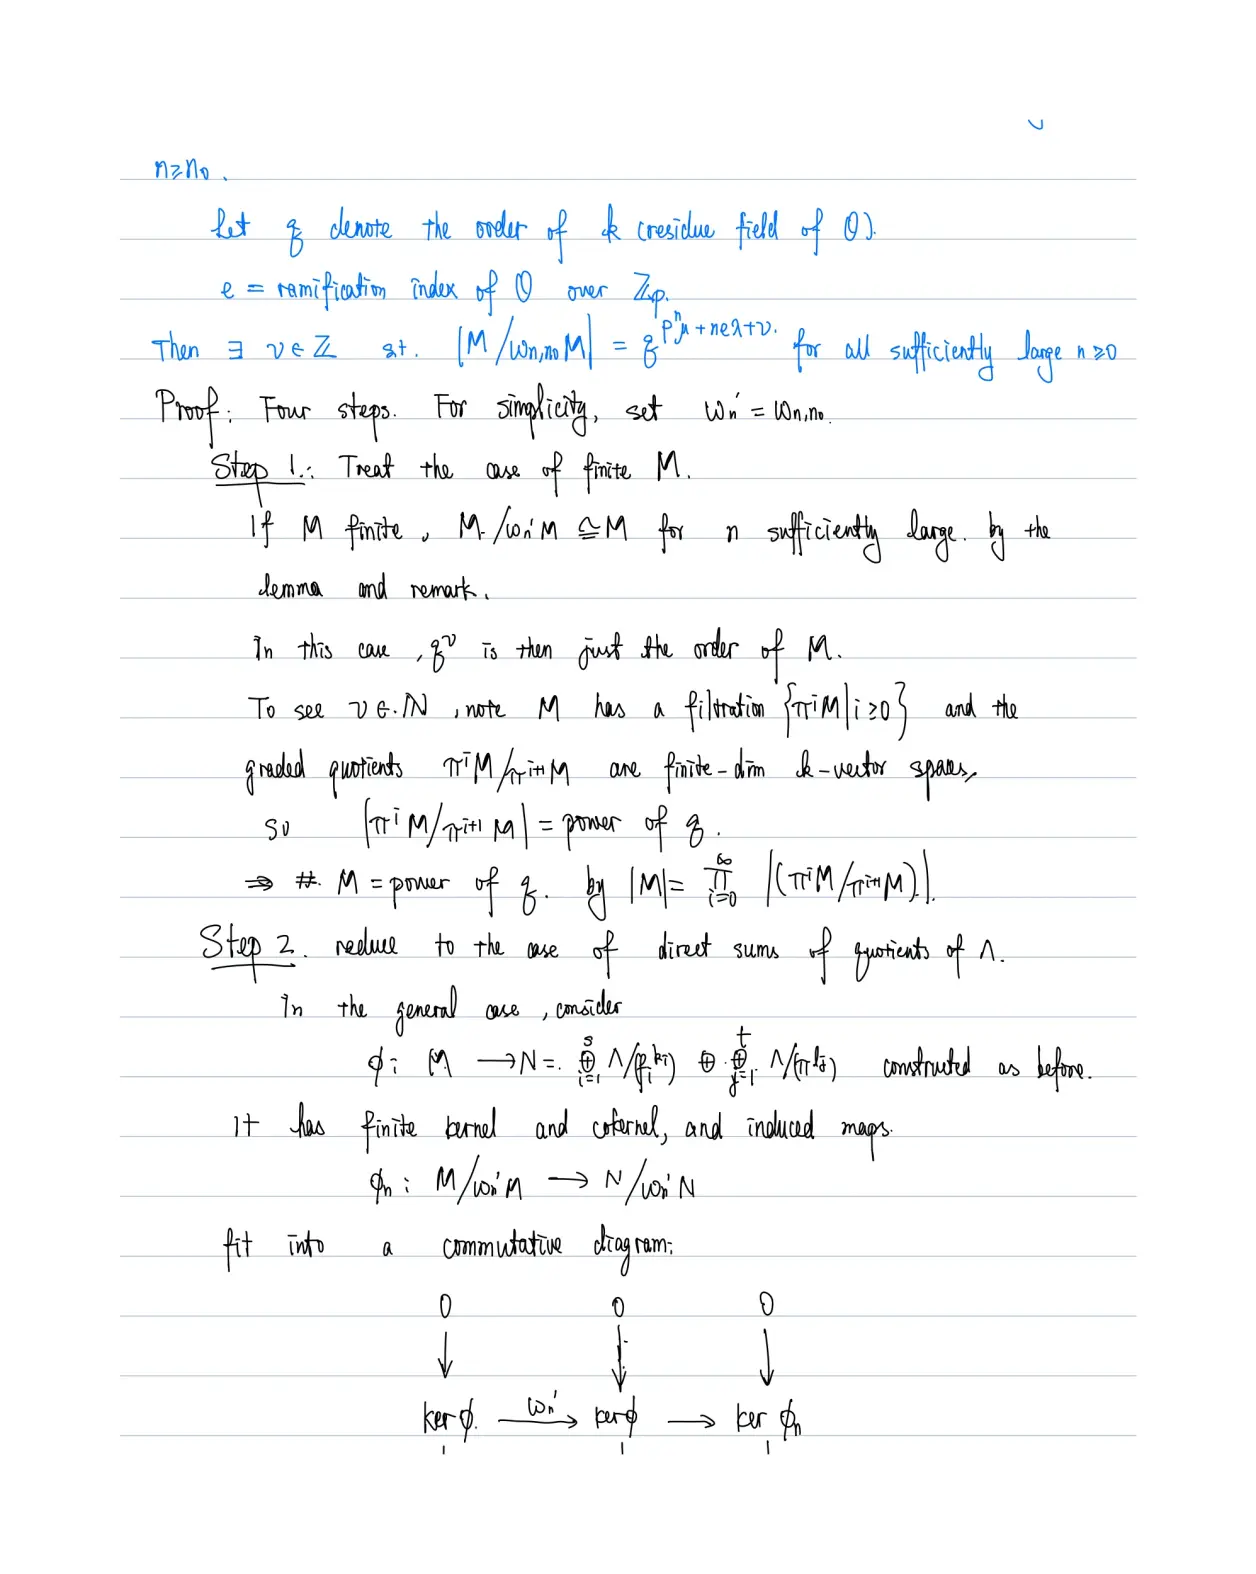 n≥n₀.
Let q denote the order of k (residue field of O).
e = ramification index of O over ℤp.
Then ∃ ν∈ℤ st. |M/ωn,n₀M| = q^{pⁿμ+neλ+ν}. for all sufficiently large n≥0
Proof: Four steps. For simplicity, set ωn' = ωn,n₀.
Step 1.: Treat the case of finite M.
If M finite, M/ωn'M ≅ M for n sufficiently large. by the
lemma and remark.
In this case, q^ν is then just the order of M.
To see ν∈ℕ, note M has a filtration {πⁱM | i≥0} and the
graded quotients πⁱM/πⁱ⁺¹M are finite-dim k-vector spaces,
so |πⁱM/πⁱ⁺¹M| = power of q.
⇒ #. M = power of q. by |M| = ∏_{i=0}^{∞} |(πⁱM/πⁱ⁺¹M)|.
Step 2. reduce to the case of direct sums of quotients of Λ.
In the general case, consider
ϕ: M → N = ⊕_{i=1}^{s} Λ/(p_i^{k_i}) ⊕ ⊕_{j=1}^{t} Λ/(π^{l_j}) constructed as before.
It has finite kernel and cokernel, and induced maps.
ϕn: M/ωn'M → N/ωn'N
fit into a commutative diagram:
0 0 0
↓ ↓ ↓
ker ϕ. —ωn'→ ker ϕ → ker ϕn